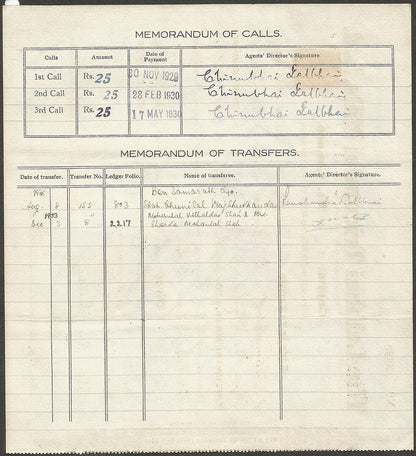 MEMORANDUM OF CALLS.
Calls Amount Date of Payment Agents' Director's Signature
1st Call Rs. 25 30 NOV 1929 Chinubhai Lalbhai
2nd Call Rs. 25 28 FEB 1930 Chinubhai Lalbhai
3rd Call Rs. 25 17 MAY 1930 Chinubhai Lalbhai
MEMORANDUM OF TRANSFERS.
Date of transfer. Transfer No. Ledger Folio. Name of transferee. Agents' Director's Signature.
Ben Samarath
Aug. 8 155 803 Shah Chunilal
1953 Mohanlal Vithaldas Shah & Mrs.
Dec 3 8 2217 Sharda Mohanlal Shah